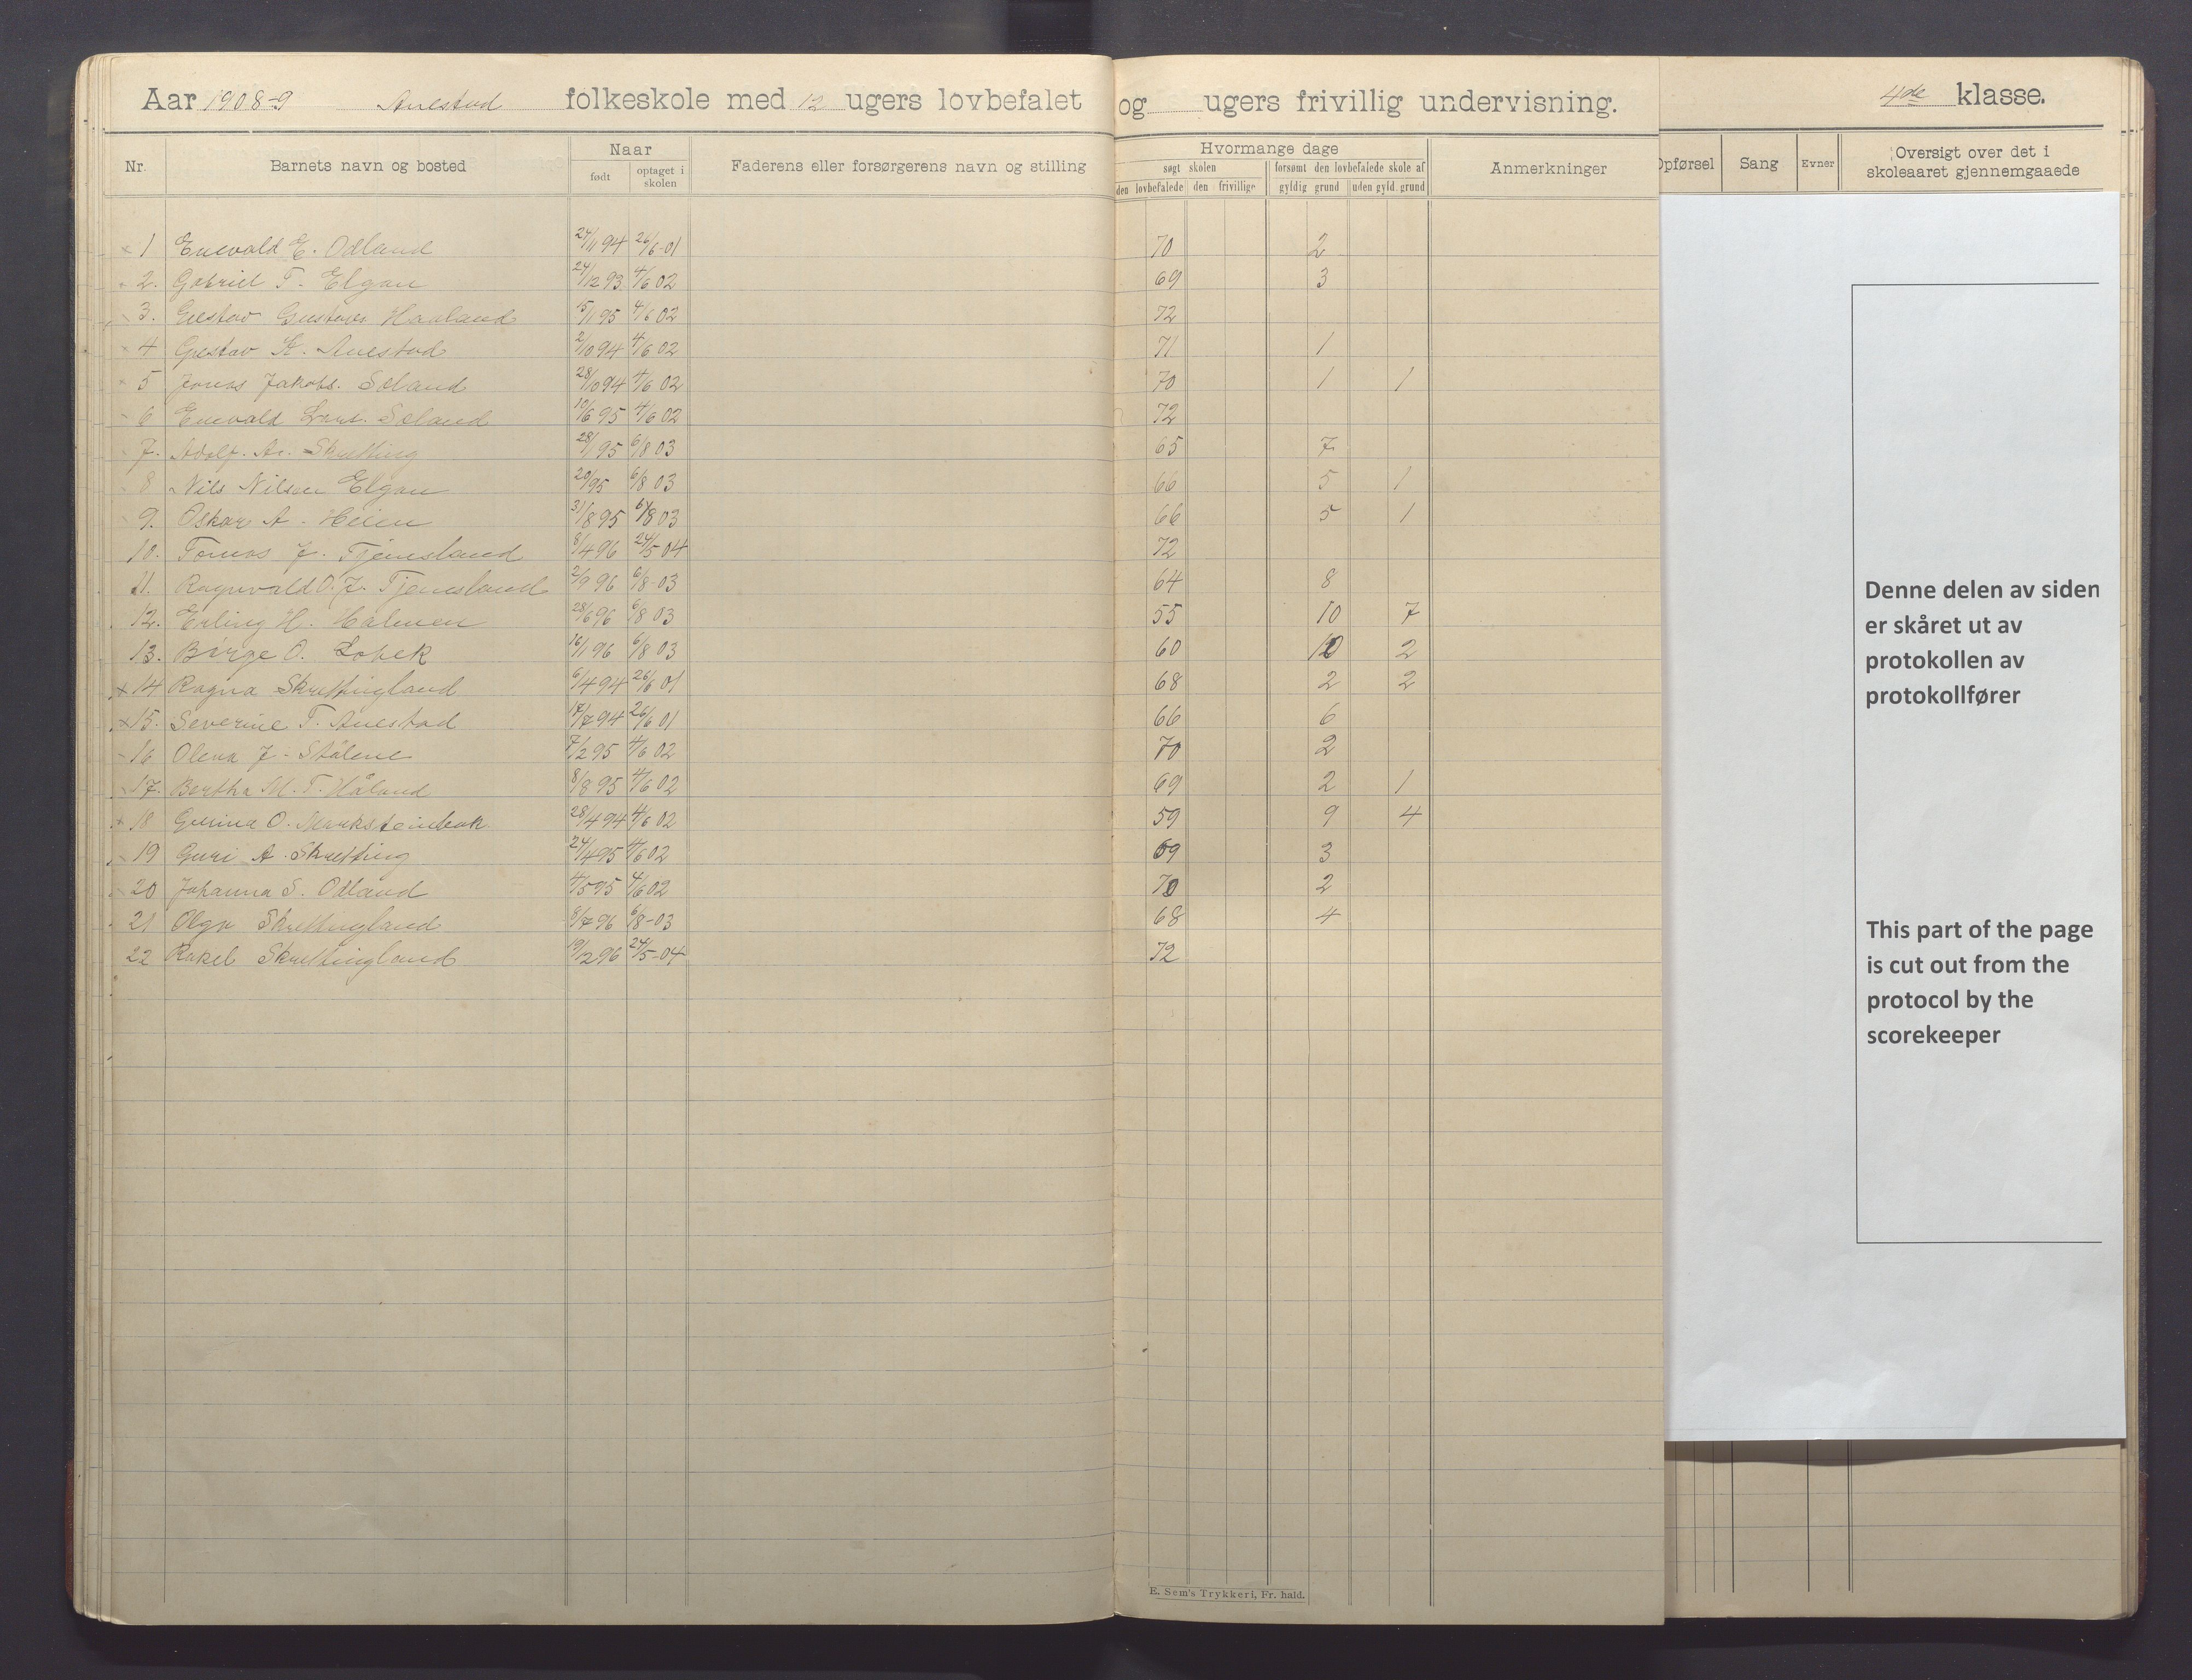 Aar 1908-9 Auestad folkeskole med 12 ugers lovbefalet og ugers frivillig undervisning. 4de klasse.
Nr. Barnets navn og bosted Naar født optaget i skolen Faderens eller forsørgerens navn og stilling Hvormange dage søgt skolen den lovbefalede den frivillige forsømt den lovbefalede skole af gyldig grund uden gyld. grund Anmerkninger Opførsel Sang Evner Oversigt over det i skoleaaret gjennemgaaede
1 Enevald E. Odland 24/11 94 26/6-01 70 2
2. Gabriel T. Elgan 24/12 93 4/6 02 69 3
3. Gustav Gustavs. Haaland 15/1 95 4/6 02 72
4 Gustav K. Auestad 2/10 94 4/6 02 71 1
5 Jonas Jakobs. Søland 28/10 94 4/6 02 70 1 1
6 Enevald Lars. Søland 10/6 95 4/6 02 72
7. Adolf. Ar. Skretting 28/1 95 6/8 03 65 7
8 Nils Nilsen Elgan 20/95 6/8 03 66 5 1
9. Oskar A. Heien 31/8 95 6/8 03 66 5 1
10. Tomas J. Tjemsland 8/4 96 24/5 04 72
11. Ragnvald O. J. Tjemsland 2/9 96 6/8-03 64 8
12. Erling H. Halmen 28/6 96 6/8 03 55 10 7
13. Børge O. Lobek 16/1 96 6/8 03 60 10 2
14 Ragna Skrettingland 6/4 94 26/6 01 68 2 2
15. Severine T. Auestad 17/7 94 26/6 01 66 6
16 Olena J. Stålene 7/2 95 4/6 02 70 2
17. Bertha M. T. Håland 8/8 95 4/6 02 69 2 1
18 Gurina O. Marksteinbak 28/4 94 4/6 02 59 9 4
19 Guri A. Skretting 24/4 95 4/6 02 69 3
20 Johanna S. Odland 4/5 95 4/6 02 70 2
21 Olga Skrettingland 8/7 96 6/8-03 68 4
22 Rakel Skrettingland 19/12 96 24/5-04 72
E. Sem's Trykkeri, Fr. hald.
Denne delen av siden
er skåret ut av
protokollen av
protokollfører
This part of the page
is cut out from the
protocol by the
scorekeeper